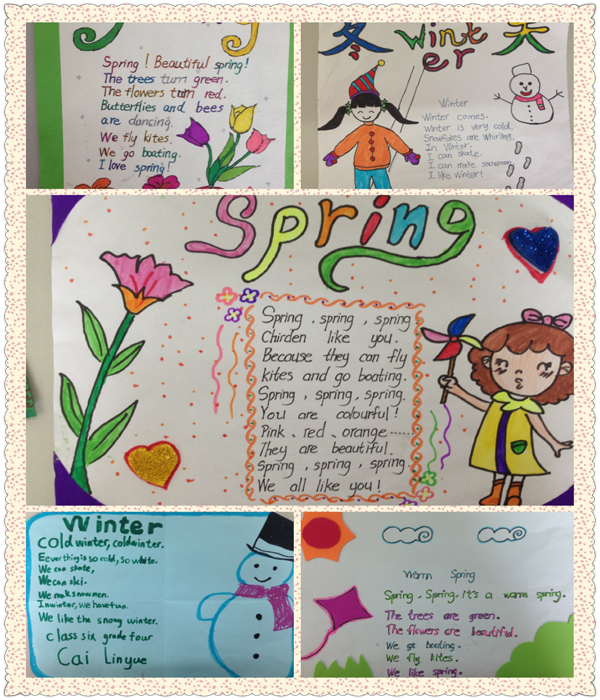 Spring! Beautiful spring!
The trees turn green.
The flowers turn red.
Butterflies and bees
are dancing.
We fly kites.
We go boating.
I love spring!
冬 Winter 天
Winter
Winter comes.
Winter is very cold.
Snowflakes are whirling.
In Winter.
I can skate.
I can make snowmen.
I like winter!
Spring
Spring , spring , spring
Chirden like you.
Because they can fly
kites and go boating.
Spring , spring, spring.
You are colourful!
Pink、red、orange……
They are beautiful.
Spring , spring , spring
We all like you!
Winter
cold winter, coldwinter.
Eeverthing is so cold, so white.
We can skate,
We can ski.
We mak snowmen.
In winter, we have fun.
We like the snowy winter.
class six grade four
Cai Linyue
Warm Spring
Spring, Spring, it's a warm spring.
The trees are green.
The flowers are beautiful.
We go boating.
We fly kites.
We like spring.